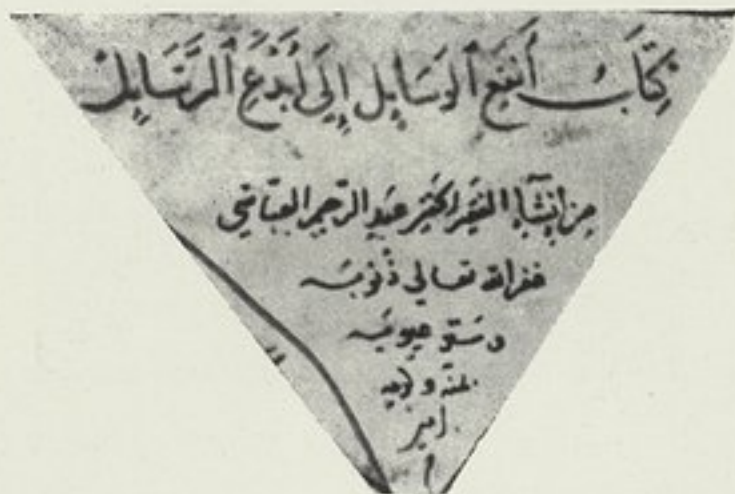 كِتَابُ أَنْفَعِ ٱلْوَسَايِلِ إِلَى أَبْدَعِ ٱلرَّسَايِلِ
من إنشاء الفقير الحقير عبد الرحيم العباسي
غفر الله تعالى ذنوبه
وستر عيوبه
بمنه وكرمه
امين